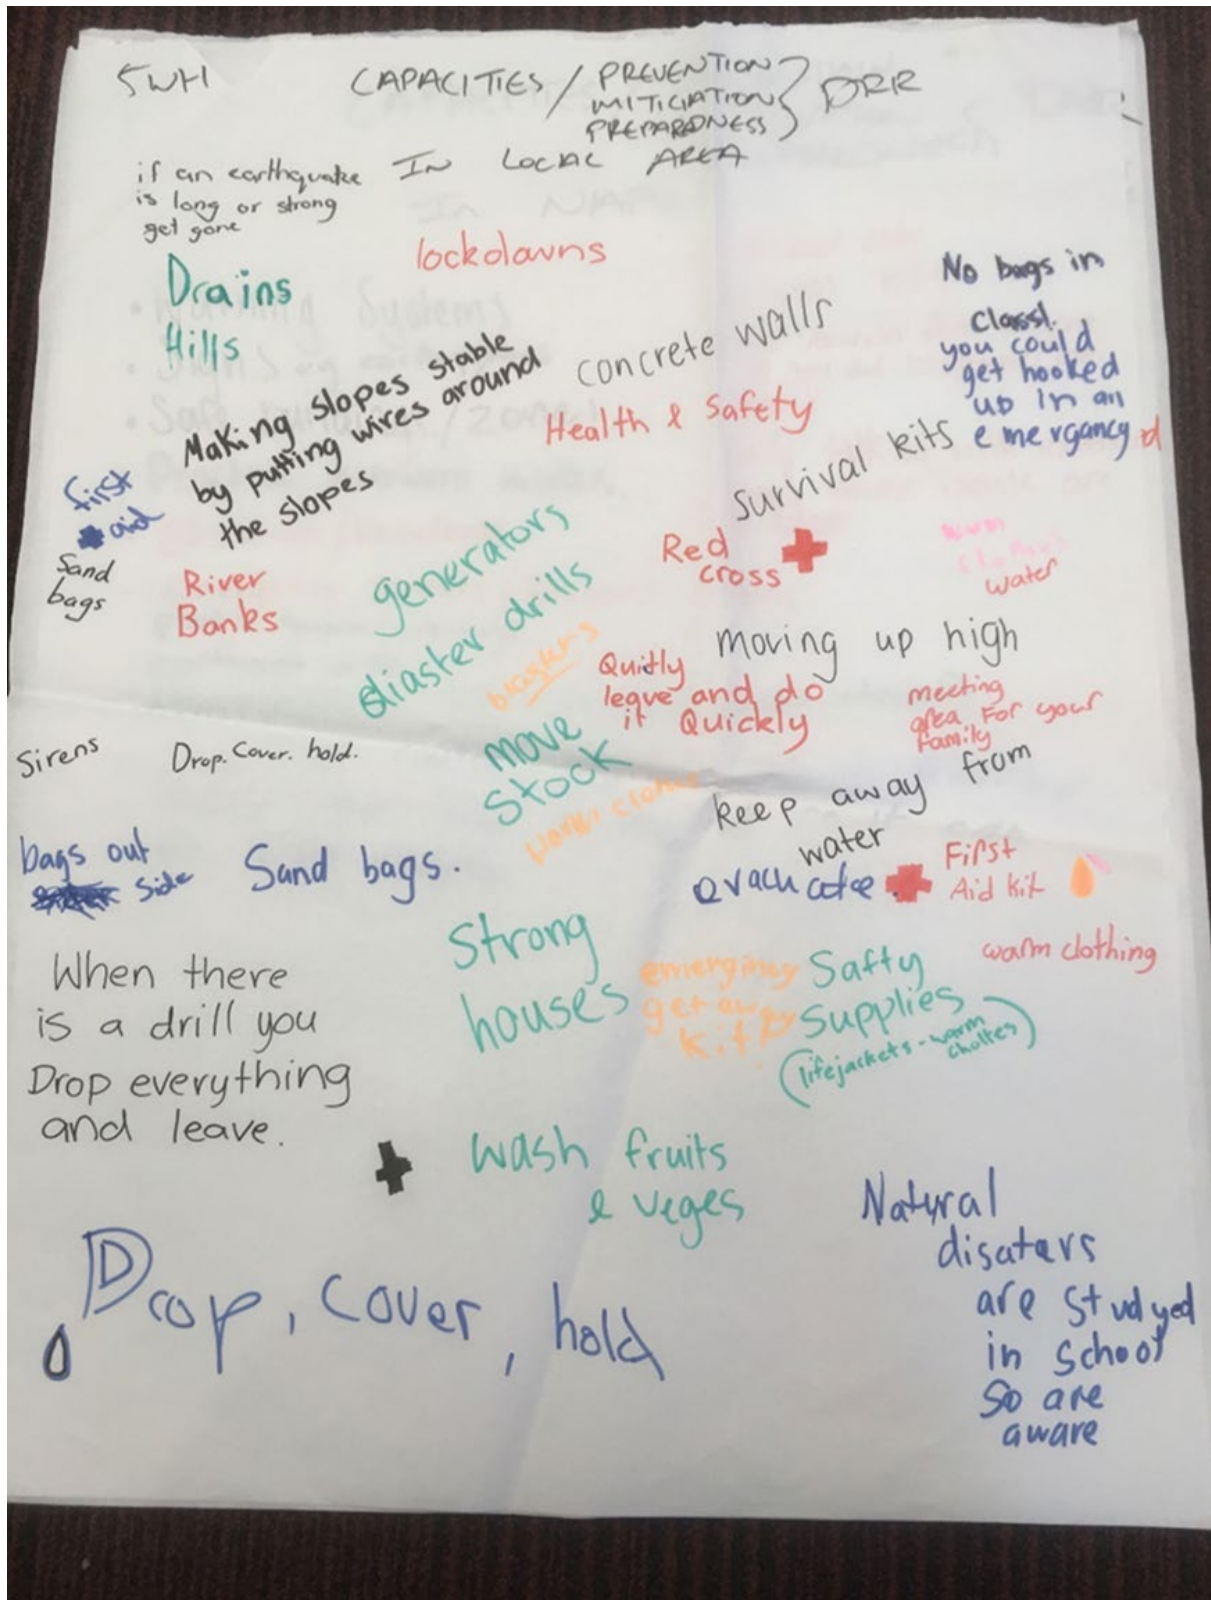 5WH
CAPACITIES / PREVENTION
MITICIATION
PREPARDNESS
} DRR
IN LOCAL AREA
if an earthquake
is long or strong
get gone
lockdowns
Drains
Hills
No bags in
class!.
you could
get hooked
up in an
emergancy
concrete walls
Making slopes stable
by putting wires around
the slopes
Health & Safety
survival kits
first
aid
Sand
bags
River
Banks
generators
diaster drills
Red
cross
warm
water
moving up high
Quitly
leave and do
it Quickly
meeting
area For your
family
Sirens
Drop. Cover. hold.
move
stock
warm clothes
keep away from
water
bags out
side
Sand bags.
evacuatee.
First
Aid kit
warm clothing
Strong
houses
emergincy
get away
kit
Safty
Supplies
(lifejackets - warm
choltes)
When there
is a drill you
Drop everything
and leave.
wash fruits
& veges
Natural
disaters
are studyed
in school
So are
aware
Drop, cover, hold